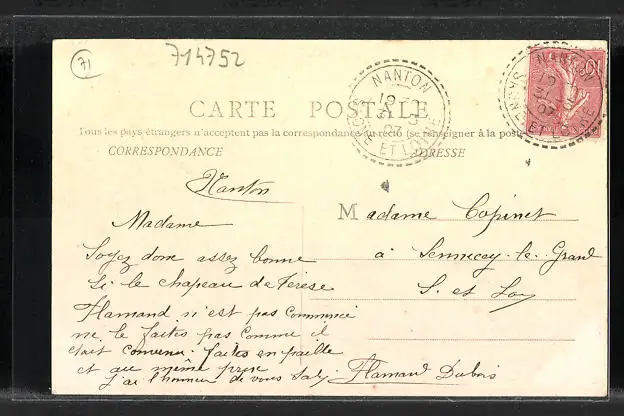 71
714752
NANTON
SAONE ET LOIRE
CARTE POSTALE
Tous les pays étrangers n'acceptent pas la correspondance au recto (se renseigner à la poste)
CORRESPONDANCE
ADRESSE
Nanton
Madame
Soyez donc assez bonne
Si le chapeau de Térèse
Flamand n'est pas commencé
ne le faites pas comme il
était convenu faites en paille
et au même prix
j'ai l'honneur de vous
Flamand Dubois
Madame Copinet
à Sennecey-le-Grand
S. et Loire